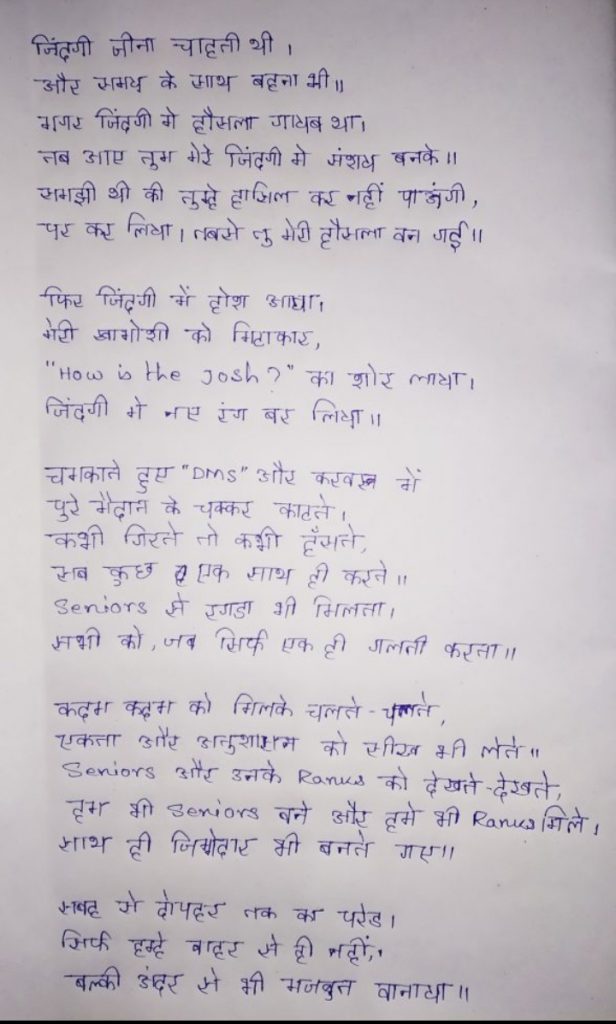 जिंदगी जीना चाहती थी ।
और समय के साथ बहना भी॥
मगर जिंदगी मे हौसला गायब था।
तब आए तुम मेरे जिंदगी मे संशय बनके॥
समझी थी की तुम्हे हासिल कर नहीं पाऊंगी,
पर कर लिया। तबसे तु मेरी हौसला बन गई॥
फिर जिंदगी में होश आया।
मेरी खामोशी को मिटाकार,
"How is the Josh?" का शोर लाया।
जिंदगी मे नए रंग बर लिया॥
चमकाते हुए "DMS" और में
पुरे मैदान के चक्कर काटते।
कभी गिरते तो कभी हँसते,
सब कुछ एक साथ ही करते॥
Seniors से रगडा भी मिलता।
सभी को, जब सिर्फ एक ही गलती करता॥
कदम कदम को मिलके चलते-चलते,
एकता और अनुशासन को सीख भी लेते॥
Seniors और उनके Ranks को देखते-देखते,
हम भी Seniors बने और हमे भी Ranks मिले।
साथ ही जिमेदार भी बनते गए॥
सबह से दोपहर तक का परेड।
सिर्फ हम्हे बाहर से ही नहीं,
बल्की अंदर से भी मजबुत बानाया॥